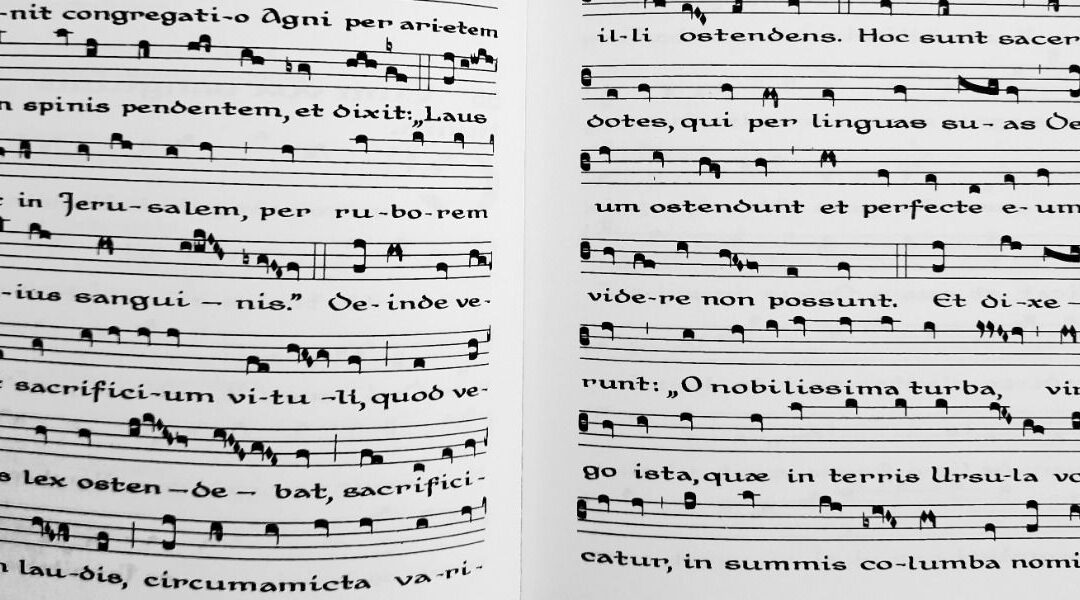 -nit congregati-o Agni per arietem
spinis pendentem, et dixit: „Laus
in Jeru-salem, per ru-bo-rem
-ius sangui – nis.” De-inde ve-
sacrifici-um vi-tu-li, quod ve-
lex osten – de – bat, sacrifici-
lau-dis, circumamicta va-ri-
il-li ostendens. Hoc sunt sacer
dotes, qui per linguas su-as De
um ostendunt et perfecte e-um
vide-re non possunt. Et di-xe-
runt: „O nobilissima turba, vir
go ista, quæ in terris Ursu-la vo
catur, in summis co-lumba nomi